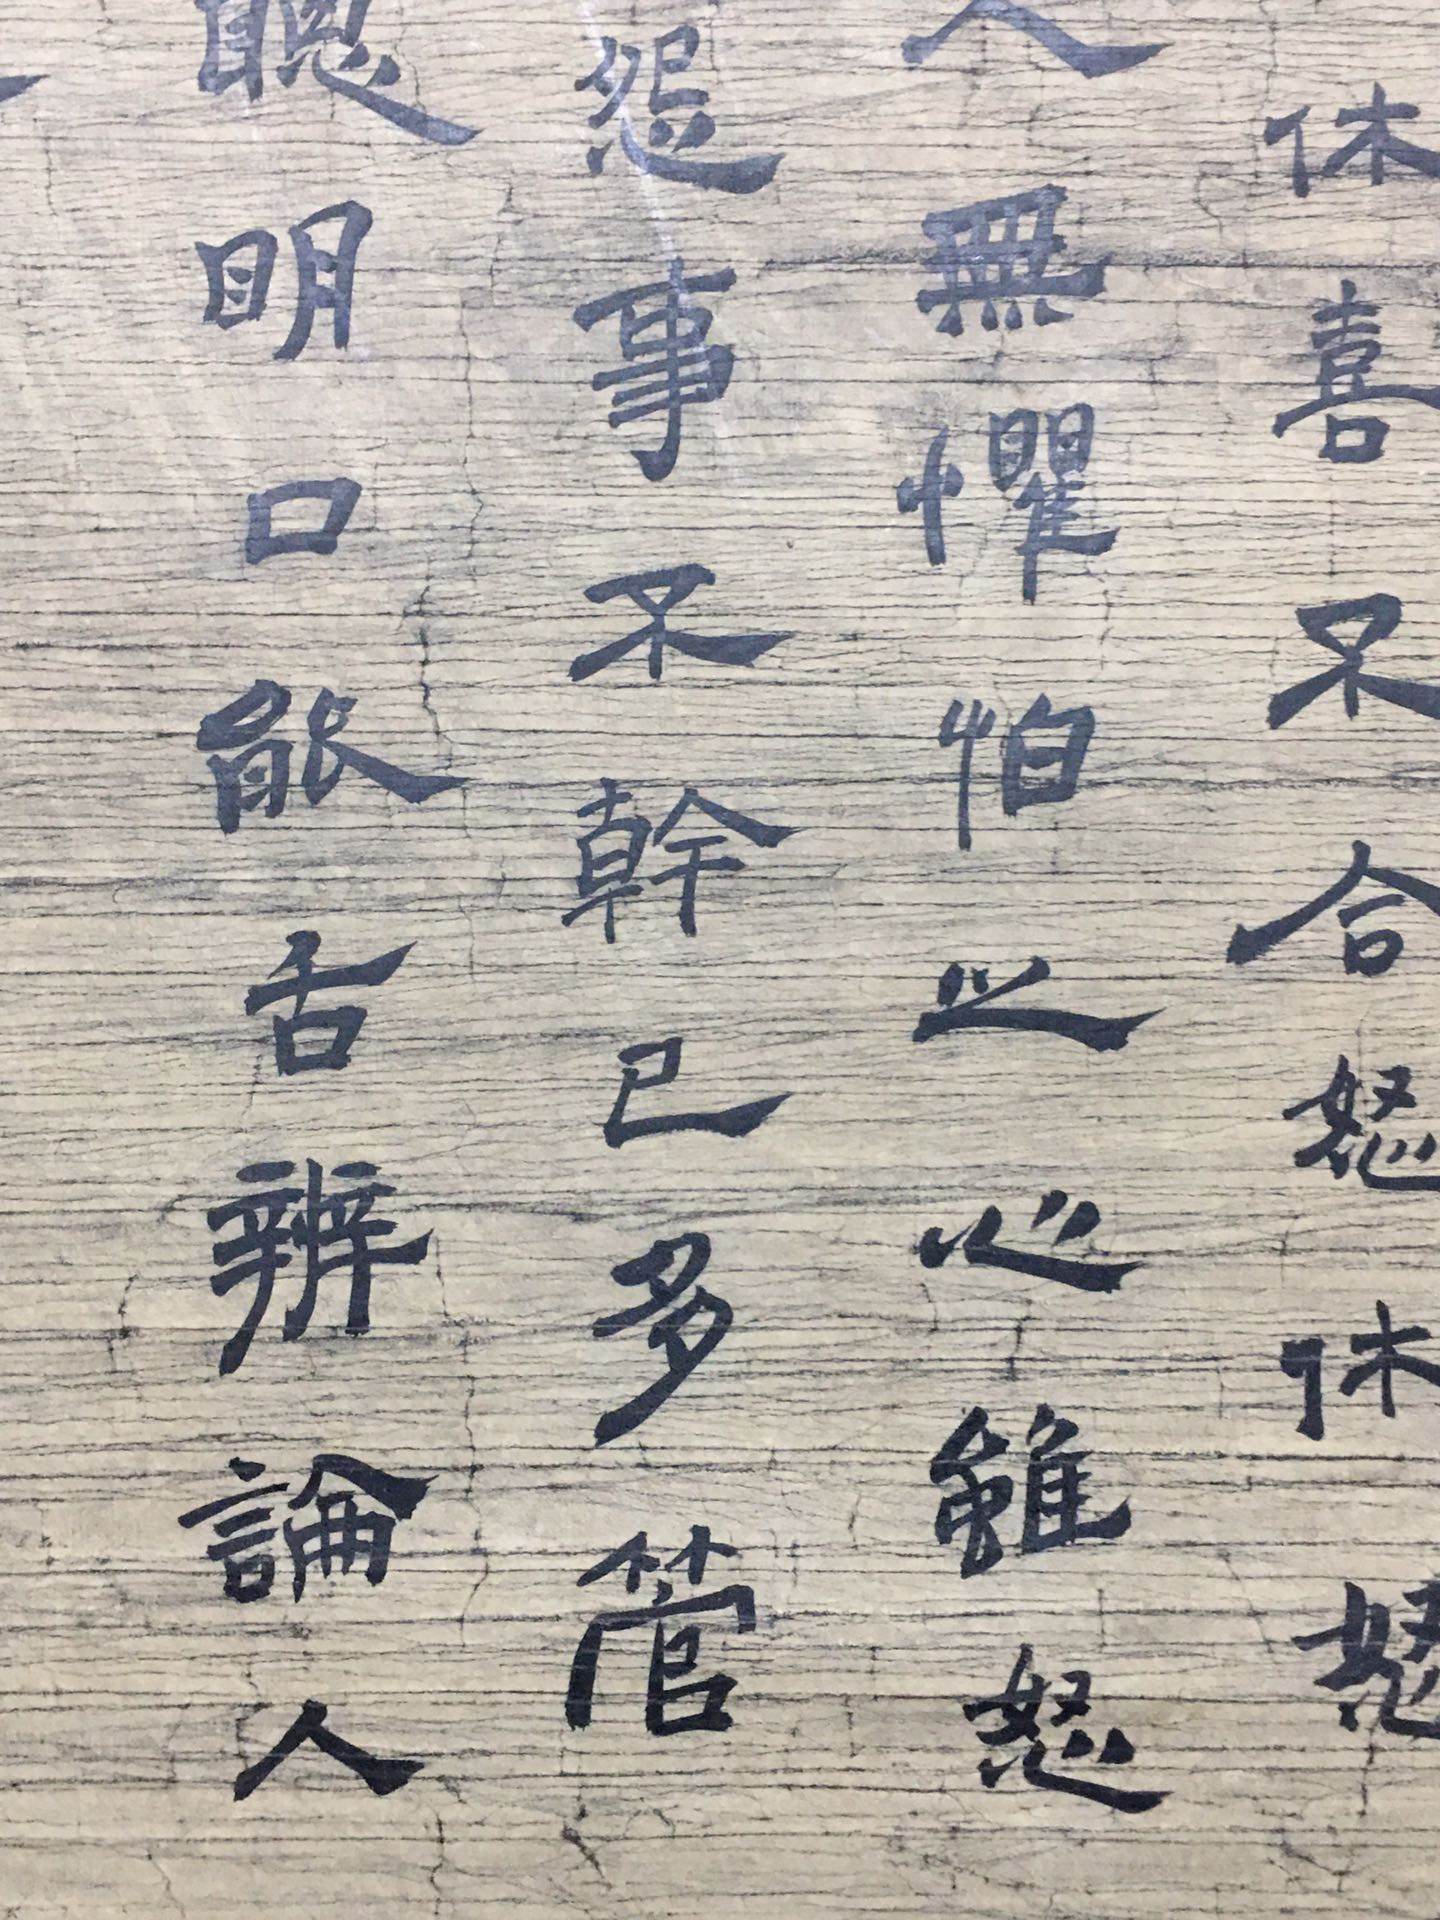 休喜不合怒休怒
人無懼怕之心雖怒
怨事不幹己多管
聰明口能舌辨論人